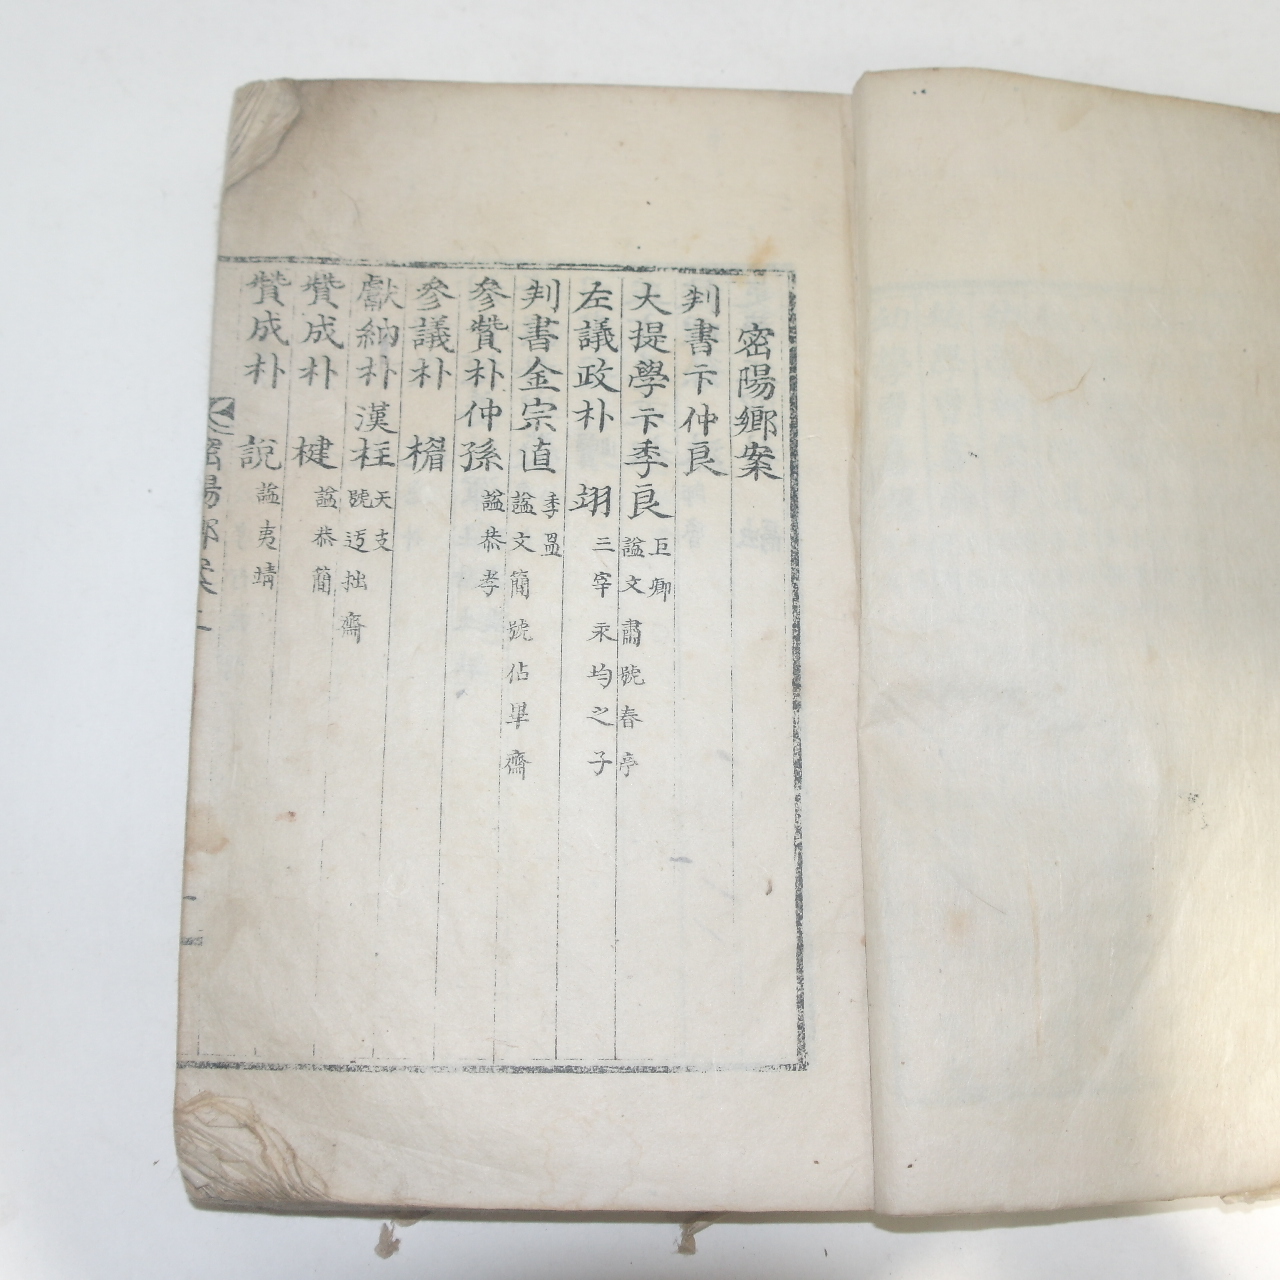 密陽鄉案
判書卞仲良
大提學卞季良 巨卿 諡文肅號春亭
左議政朴 翊 三宰永均之子
判書金宗直 季昷 諡文簡號佔畢齋
參贊朴仲孫 諡恭孝
參議朴 楣
獻納朴漢柱 天支 號迃拙齋
贊成朴 楗 諡恭簡
贊成朴 說 諡夷靖
密陽鄉案